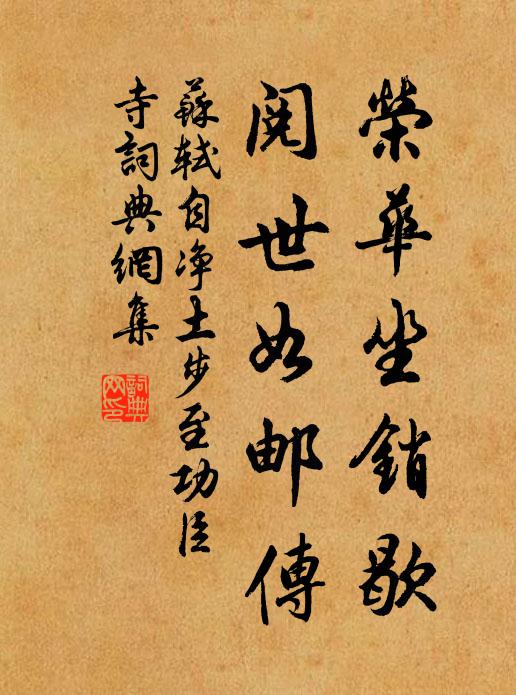 榮華坐銷歇
閱世如郵傳
蘇軾自净土步至功臣
寺詞典網集
詞典網印